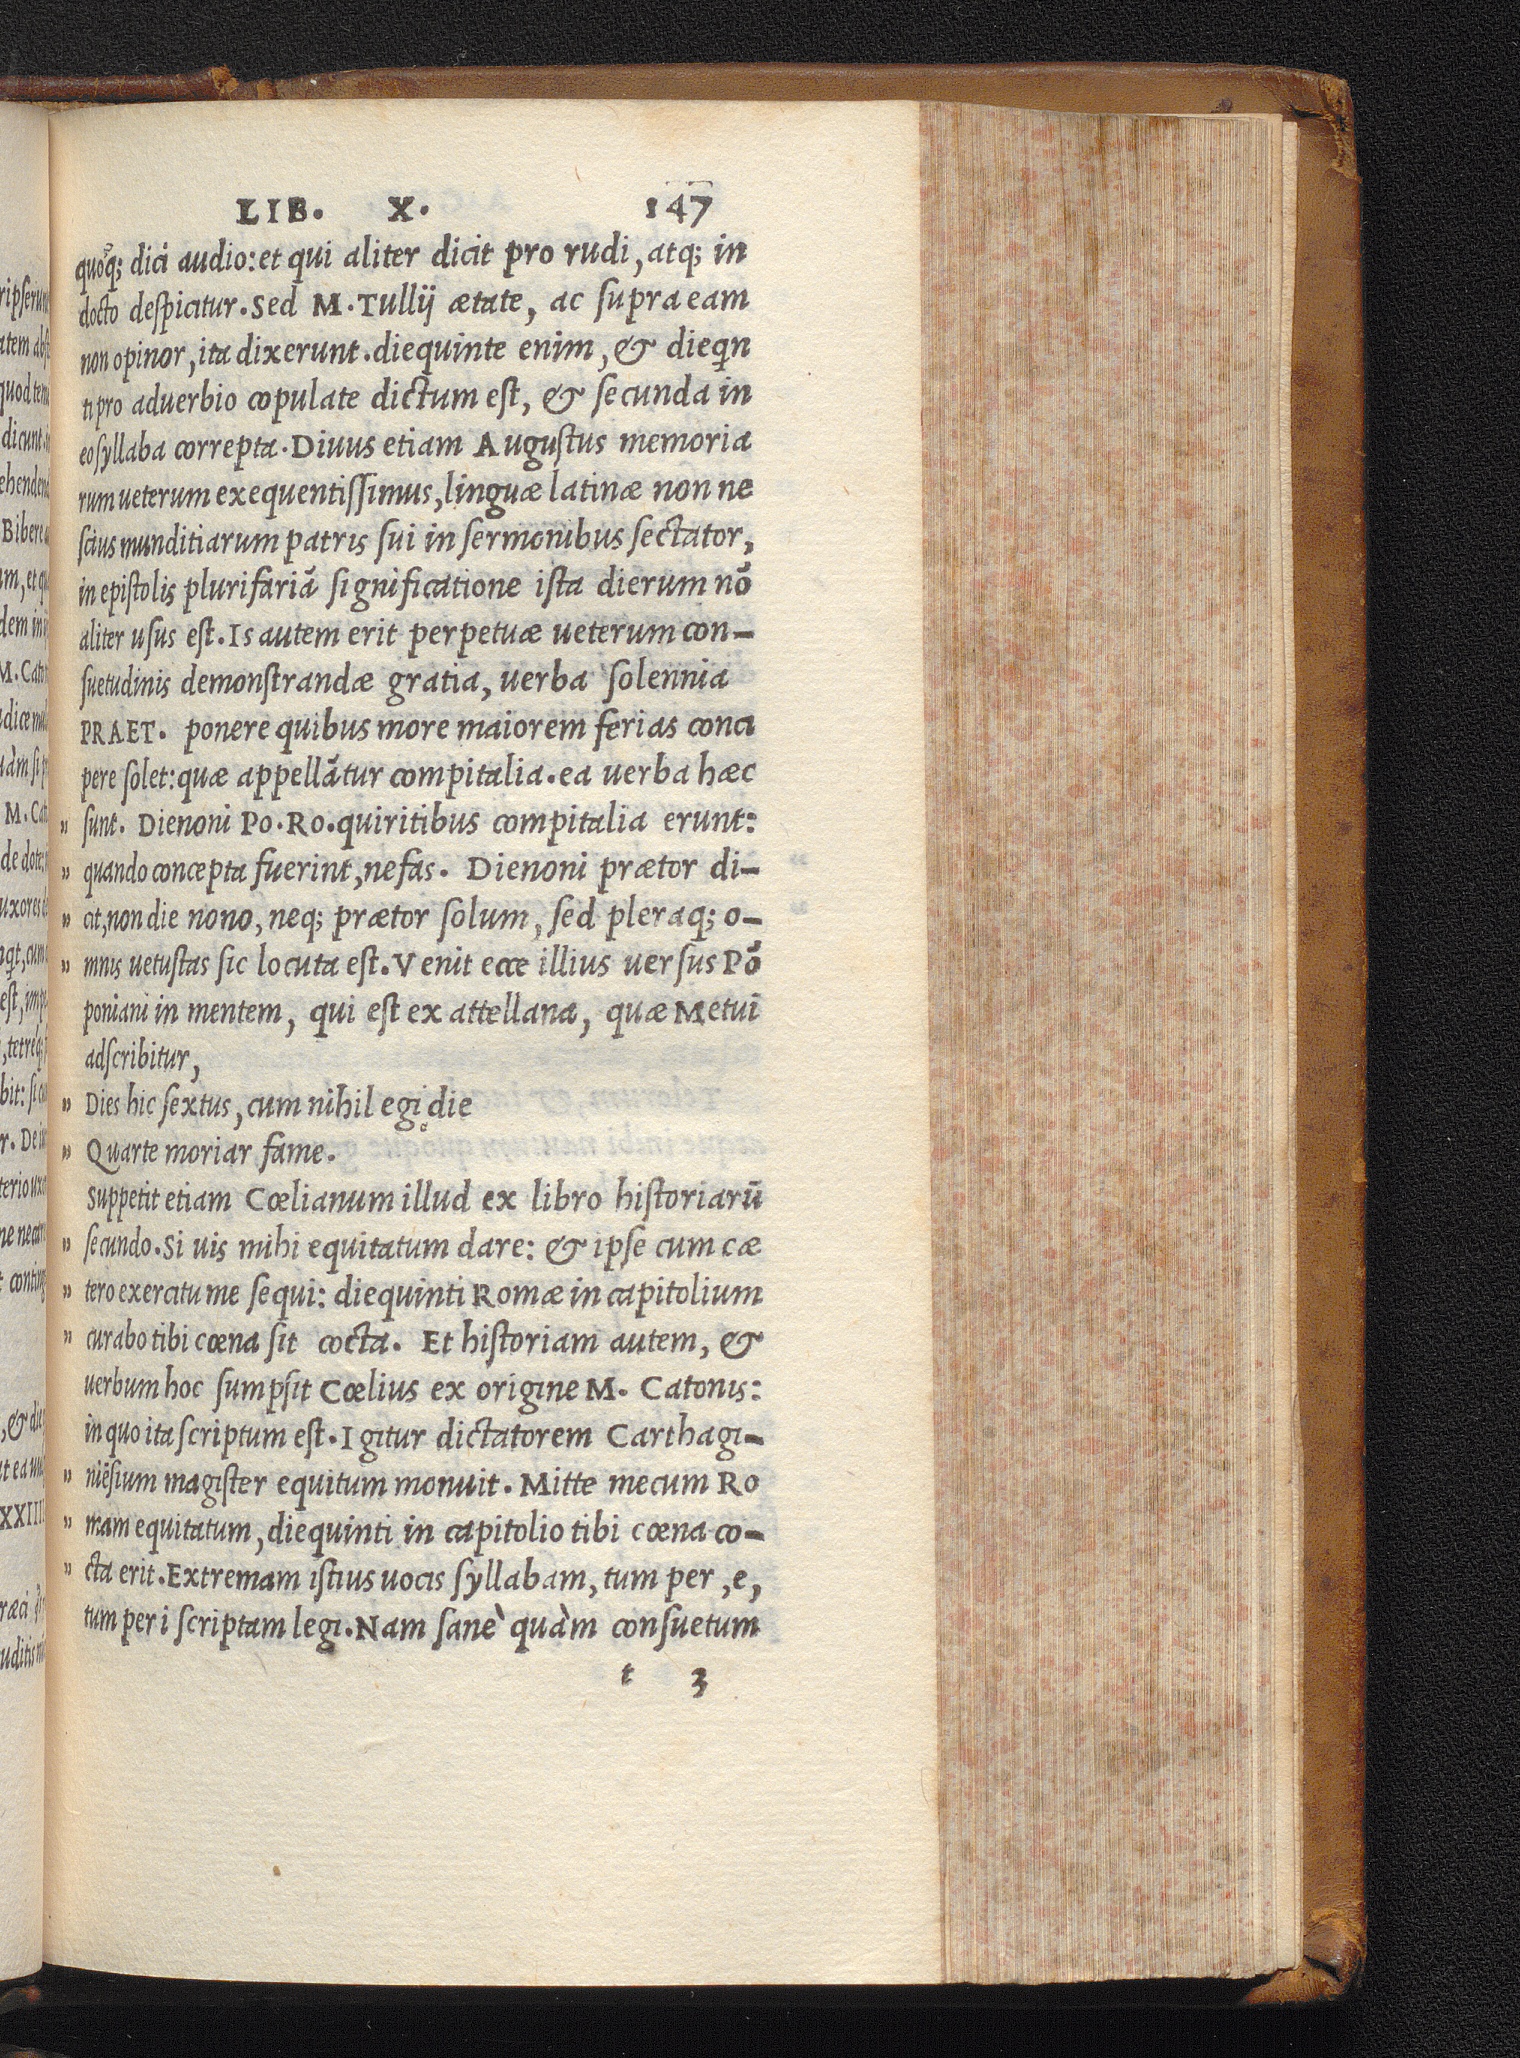 LIB. X. 147
quoq; dici audio: et qui aliter dicit pro rudi, atq; in
docto despicitur. Sed M. Tullij ætate, ac supra eam
non opinor, ita dixerunt. diequinte enim, & diequin
ti pro aduerbio copulate dictum est, & secunda in
eo syllaba correpta. Diuus etiam Augustus memoria
rum ueterum exequentissimus, linguæ latinæ non ne
scius munditiarum patris sui in sermonibus sectator,
in epistolis plurifariā significatione ista dierum nō
aliter usus est. Is autem erit perpetuæ ueterum con-
suetudinis demonstrandæ gratia, uerba solennia
PRAET. ponere quibus more maiorem ferias conci
pere solet: quæ appellātur compitalia. ea uerba hæc
„ sunt. Dienoni Po. Ro. quiritibus compitalia erunt:
„ quando concepta fuerint, nefas. Dienoni prætor di-
„ cit, non die nono, neq; prætor solum, sed pleraq; o-
„ mnis uetustas sic locuta est. Venit ecce illius uersus Pō
poniani in mentem, qui est ex attellana, quæ Metui
adscribitur,
„ Dies hic sextus, cum nihil egi die
„ Quarte moriar fame.
Suppetit etiam Cœlianum illud ex libro historiarū
„ secundo. Si uis mihi equitatum dare: & ipse cum cæ
„ tero exercitu me sequi: diequinti Romæ in capitolium
„ curabo tibi cœna sit cocta. Et historiam autem, &
uerbum hoc sumpsit Cœlius ex origine M. Catonis:
in quo ita scriptum est. Igitur dictatorem Carthagi-
„ niēsium magister equitum monuit. Mitte mecum Ro
„ mam equitatum, diequinti in capitolio tibi cœna co-
„ cta erit. Extremam istius uocis syllabam, tum per, e,
tum per i scriptam legi. Nam sanè quàm consuetum
t 3